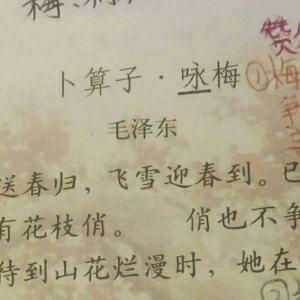 梅
卜算子·咏梅
①梅
毛泽东
送春归，飞雪迎春到。已
有花枝俏。 俏也不争
待到山花烂漫时，她在
②